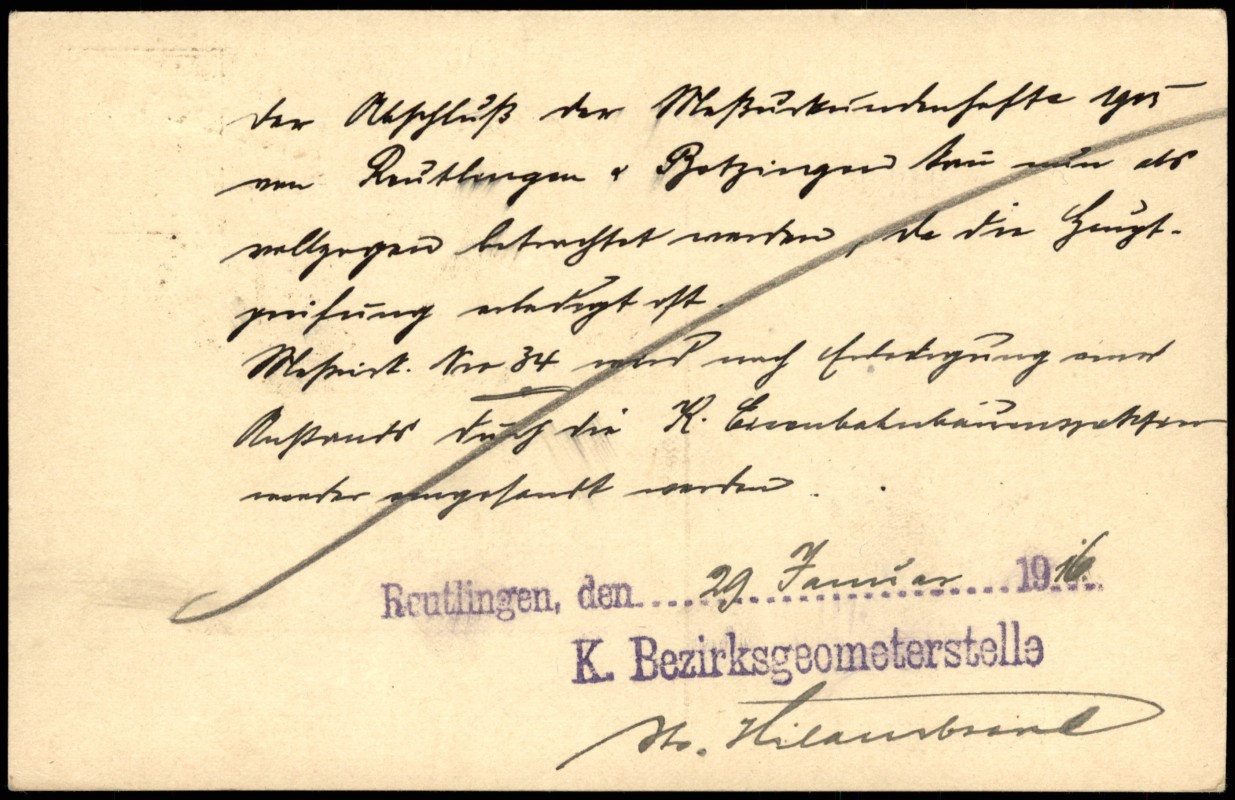 Der Abschluß der Meßurkundenhefte 1915
von Reutlingen & Betzingen kan̄ nun als
vollzogen betrachtet werden, da die Haupt-
prüfung erledigt ist.
Meßurk. Nro 34 wird nach Erledigung eines
Anstands durch die K. Eisenbahnbauinspektion
wieder eingesandt werden.
Reutlingen, den 29 Januar 1916.
K. Bezirksgeometerstelle